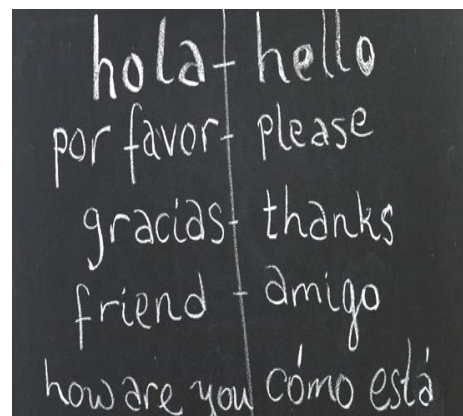 hola - hello
por favor - please
gracias - thanks
friend - amigo
how are you cómo está